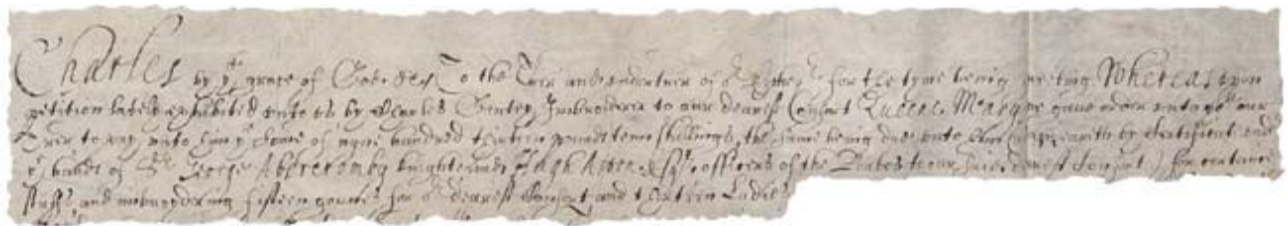 Charles by yᵉ grace of God &c To the Trer and undertrer of Excheqʳ for the tyme being greeting. Whereas upon
petition lately exhibited unto us by Charles Gentey Imbroderer to our dearest Consort Queene Mary we gave order unto you our
Trer to pay unto him yᵉ some of nyne hundred thirteen pounds tenn shillings, the same being due unto him by certificat under
yᵉ hands of Sʳ George Abercromby knight and Hugh officers of the Robes to our dearest Consort) for certaine
stuffs and imbrodering fifteen gownes for oʳ dearest Consort and thirteen Ladies